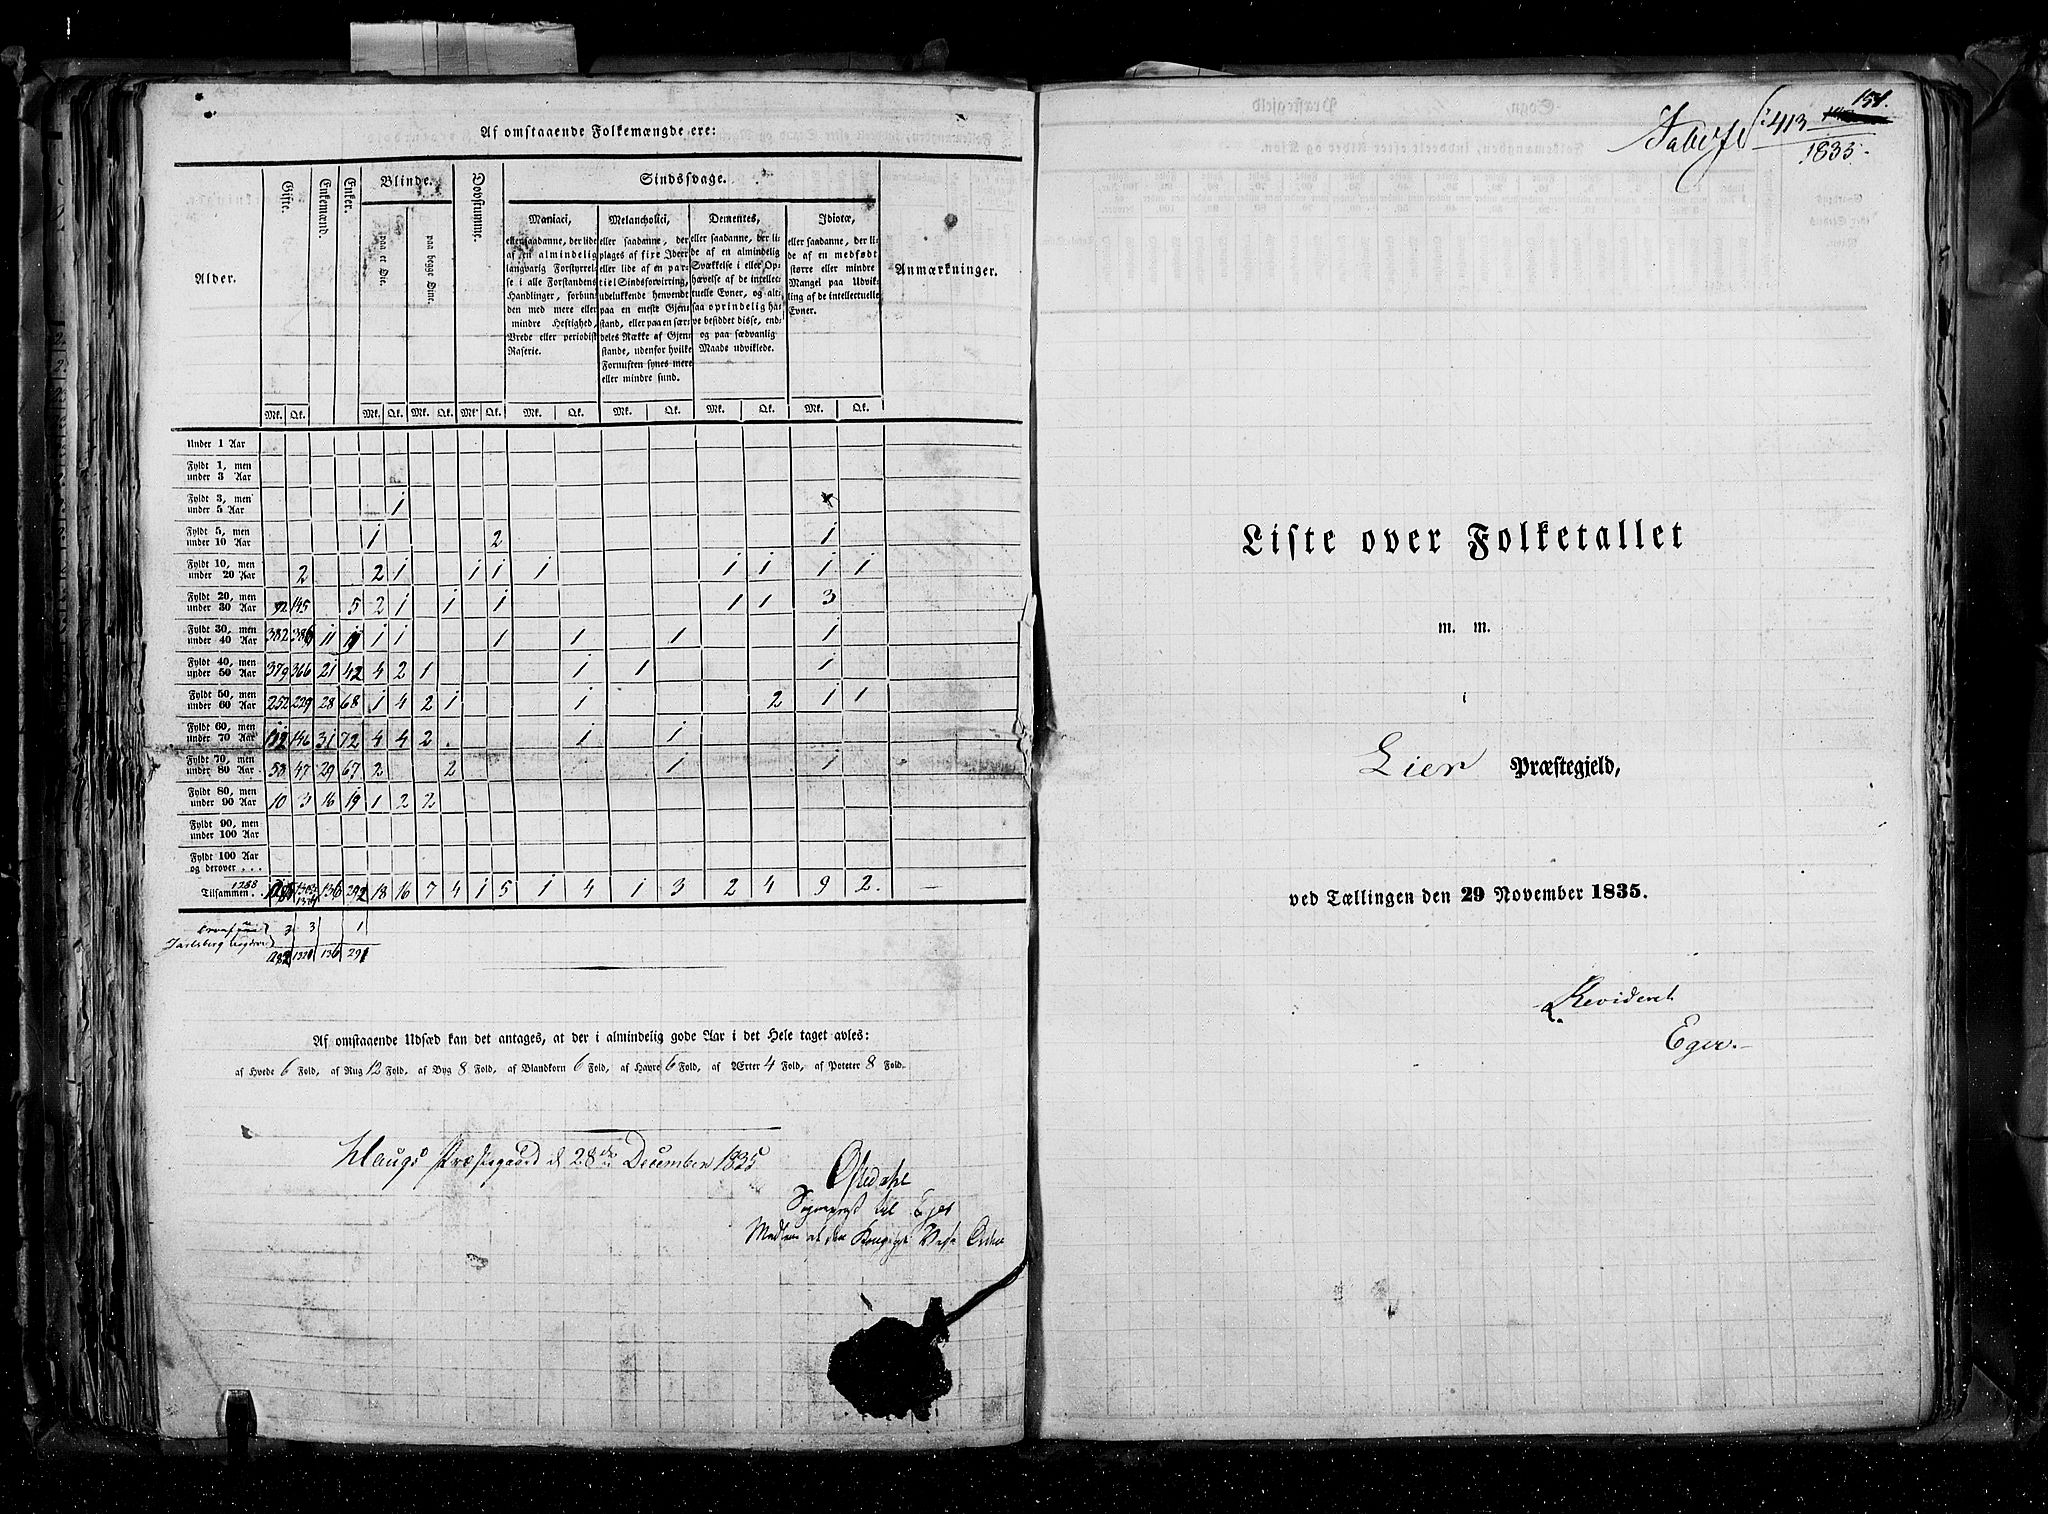 Af omstaaende Folkemængde ere:
Alder.
Gifte.
Enkemænd.
Enker.
Blinde.
paa et Øie.
paa begge Øine.
Døvstumme.
Sindssvage.
Maniaci,
eller saadanne, der lide
af en almindelig
langvarig Forstyrrel-
se i alle Forstandens
Handlinger, forbun-
den med mere eller
mindre Heftighed,
Vrede eller periodisk
Raserie.
Melancholici,
eller saadanne, der
plages af fixe Ideer
eller lide af en par-
tiel Sindsforvirring,
udelukkende henvendt
paa en eneste Gjen-
stand, eller paa en sær-
deles Række af Gjen-
stande, udenfor hvilke
Fornuften synes mere
eller mindre sund.
Dementes,
eller saadanne, der li-
de af en almindelig
Svækkelse i eller Op-
hævelse af de intellec-
tuelle Evner, og alt-
saa oprindelig ha-
ve besiddet disse, end-
og paa sædvanlig
Maade udviklede.
Idiotæ,
eller saadanne, der li-
de af en medfødt
større eller mindre
Mangel paa Udvik-
ling af de intellectuelle
Evner.
Anmærkninger.
Mk. Qk. Mk. Qk. Mk. Qk. Mk. Qk. Mk. Qk. Mk. Qk. Mk. Qk. Mk. Qk.
Under 1 Aar
Fyldt 1, men
under 3 Aar
Fyldt 3, men
under 5 Aar 1
Fyldt 5, men
under 10 Aar 1 2 1
Fyldt 10, men
under 20 Aar 2 2 1 1 1 1 1 1 1 1
Fyldt 20, men
under 30 Aar 92 145 5 2 1 1 1 1 1 3
Fyldt 30, men
under 40 Aar 382 386 11 19 1 1 1 1 1 1
Fyldt 40, men
under 50 Aar 379 366 21 42 4 2 1 1 1 1
Fyldt 50, men
under 60 Aar 252 229 28 68 1 4 2 1 1 2 1 1
Fyldt 60, men
under 70 Aar 146 31 72 4 4 2 1 1
Fyldt 70, men
under 80 Aar 58 47 29 67 2 2 1 1
Fyldt 80, men
under 90 Aar 10 3 16 19 1 2 2
Fyldt 90, men
under 100 Aar
Fyldt 100 Aar
og derover . . .
1288
Tilsammen. 1324 136 292 18 16 7 4 1 5 1 4 1 3 2 4 9 2.
3 3 1
Jarlsberg
136 291
Af omstaaende Udsæd kan det antages, at der i almindelig gode Aar i det Hele taget avles:
af Hvede 6 Fold, af Rug 12 Fold, af Byg 8 Fold, af Blandkorn 6 Fold, af Havre 6 Fold, af Ærter 4 Fold, af Poteter 8 Fold.
Haugs Præstegaard d 28de December 1835
Oftedahl
Sognepræst til Eger
Medlem af den Kongelige Vasa Orden
151.
413
1835.
Liste over Folketallet
m. m.
i
Lier Præstegjeld,
ved Tællingen den 29 November 1835.
Revideret
Eger.